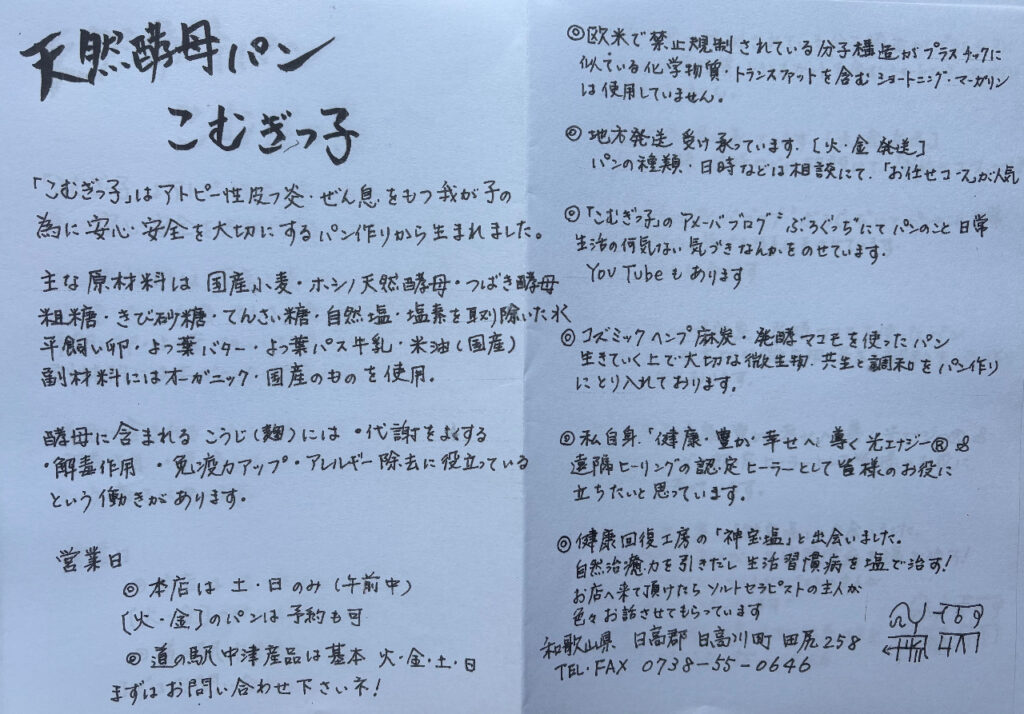 天然酵母パン
こむぎっ子
「こむぎっ子」はアトピー性皮フ炎・ぜん息をもつ我が子の
為に安心・安全を大切にするパン作りから生まれました。
主な原材料は 国産小麦・ホシノ天然酵母・つばき酵母
粗糖・きび砂糖・てんさい糖・自然塩・塩素を取り除いた水
平飼い卵・よつ葉バター・よつ葉パス牛乳・米油(国産)
副材料にはオーガニック・国産のものを使用.
酵母に含まれる こうじ(麹)には ・代謝をよくする
・解毒作用 ・免疫力アップ・アレルギー除去に役立っている
という働きがあります。
営業日
◎ 本店は 土・日のみ(午前中)
[火・金]のパンは予約も可
◎ 道の駅 中津産品は基本 火・金・土・日
まずはお問い合わせ下さいネ!
◎欧米で禁止規制されている分子構造がプラスチックに
似ている化学物質・トランスファットを含むショートニング・マーガリン
は使用していません。
◎ 地方発送 受け承っています.[火・金 発送]
パンの種類・日時などは相談にて.「お任せコース」が人気
◎「こむぎっ子」のアメーバブログ〝ぶろぐっち〟にてパンのこと 日常
生活の何気ない気づきなんかをのせています.
YouTubeもあります
◎ コズミックヘンプ麻炭・発酵マコモを使ったパン
生きていく上で大切な微生物.共生と調和をパン作り
にとり入れております。
◎ 私自身.「健康・豊か 幸せへ」導く光エナジー® &
遠隔ヒーリングの認定ヒーラーとして皆様のお役に
立ちたいと思っています。
◎ 健康回復工房の「神宝塩」と出会いました。
自然治癒力を引きだし 生活習慣病を塩で治す!
お店へ来て頂けたら ソルトセラピストの主人が
色々お話させてもらっています
和歌山県 日高郡 日高川町 田尻258
TEL・FAX 0738-55-0646